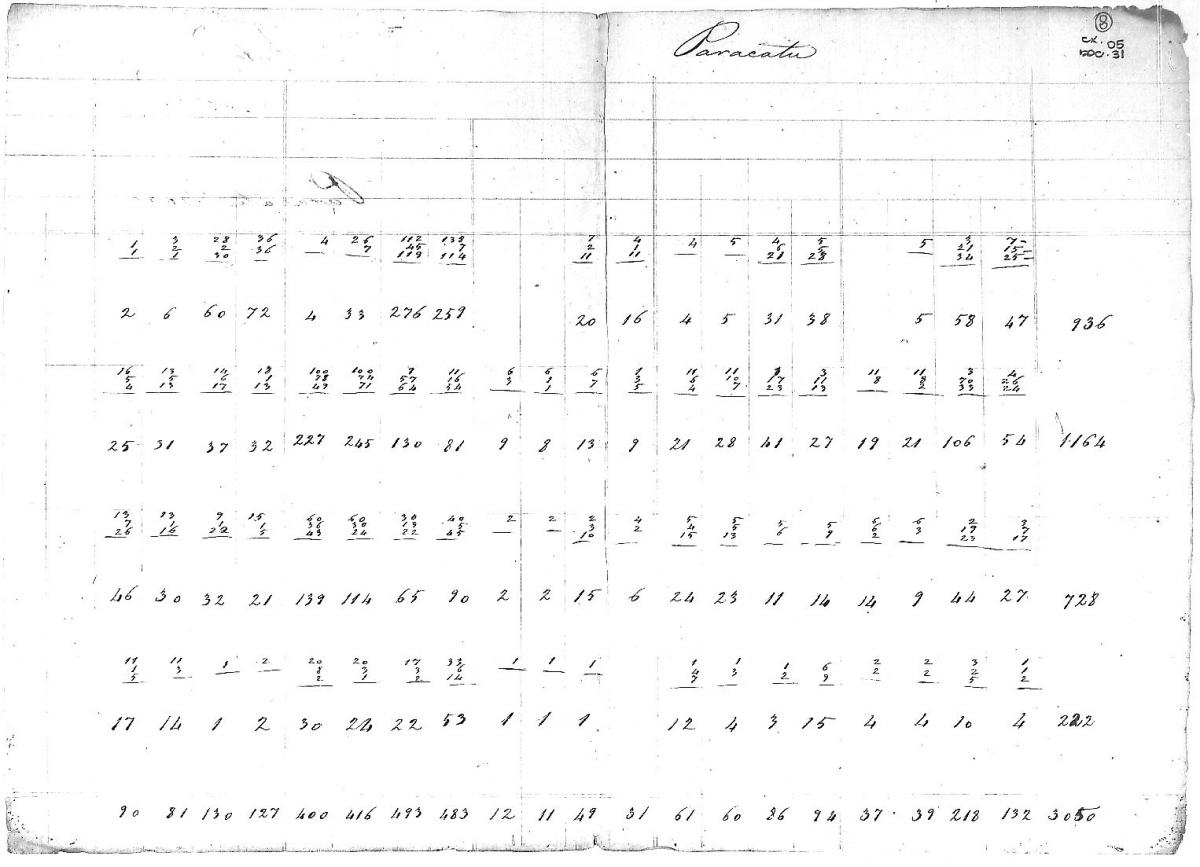 8
cx. 05
DOC. 31
Paracatu
1 3 28 36 4 26 112 138 7 4 4 5 4 5 5 3 7
1 2 2 36 7 45 7 2 1 6 5 21 15
1 30 119 114 11 11 21 28 34 25
2 6 60 72 4 33 276 259 20 16 4 5 31 38 5 58 47 936
16 13 14 18 100 100 9 11 6 6 6 1 11 11 3 11 11 3 4
5 5 6 1 78 74 57 16 3 1 7 3 6 10 17 11 8 8 70 26
4 13 17 13 49 71 64 54 1 5 4 7 23 13 2 33 24
25 31 37 32 227 245 130 81 9 8 13 9 21 28 41 27 19 21 106 54 1164
13 13 9 15 60 60 30 40 2 2 2 4 5 5 5 5 6 6 2 3
7 1 1 1 36 30 13 5 3 2 4 5 6 9 6 3 19 7
26 16 22 5 43 24 22 45 10 15 13 2 23 17
46 30 32 21 139 114 65 90 2 2 15 6 24 23 11 14 14 9 44 27 728
11 11 1 2 20 20 17 33 1 1 1 1 1 1 6 2 2 3 1
1 3 8 3 3 6 4 3 2 9 2 2 2 1
5 2 1 2 14 7 5 2
17 14 1 2 30 24 22 53 1 1 1 12 4 3 15 4 4 10 4 222
90 81 130 127 400 416 493 483 12 11 49 31 61 60 86 94 37 39 218 132 3050